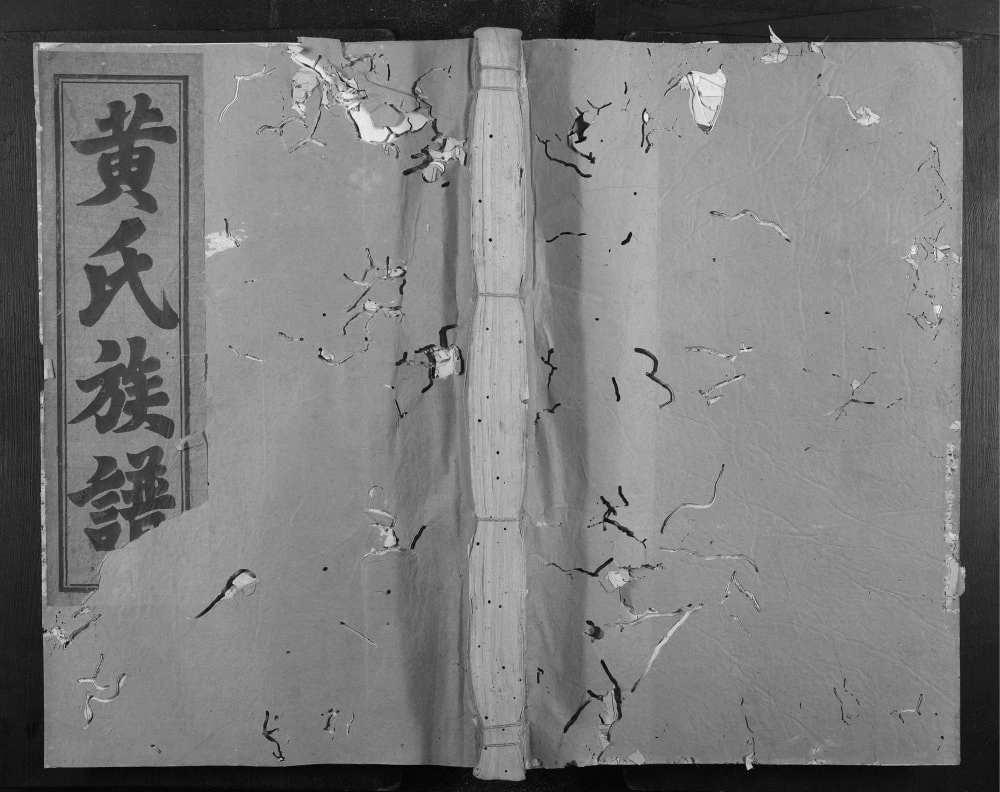 黃氏族譜